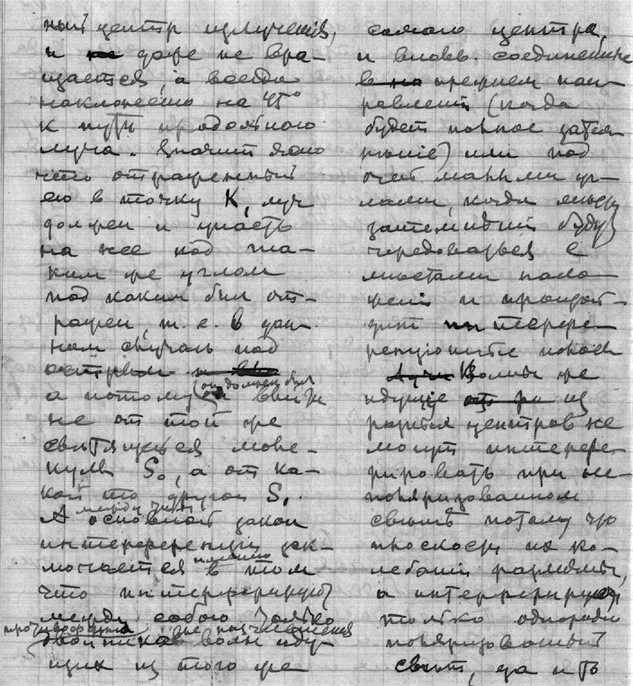 ный центр излученiя,
и не даже не вра-
щается, а всегда
наклонено на 45°
к пути продольного
луча. Значит ясно
отраженный
ею в точку K, луч
должен и упасть
на нее под та-
ким же углом
под каким был от-
ражен, т. е. в дан-
ном случаѣ под
острым
а потому он должен был выйти
не от той же
свѣтящейся моле-
кулы S₀, а от ка-
кой то другой S₁.
А между тем основной закон
интерференцiи зак-
лючается именно в том
что интерферируют
между собою только
двойники волн иду-
щих из того же
самого центра,
и вновь соединенные
в на прежнем нап-
равленiи (когда
будет полное затем-
ненiе) или под
очень малыми уг-
лами, когда между
затемненiй будут
чередоваться с
мѣстами
и произой-
дут интерфе-
ренцiонные полосы
Лучи Волны же
идущiе из
разных центров не
могут интерфе-
рировать при не-
поляризованном
свѣтѣ потому что
плоскости их ко-
лебанiй различны,
а интерферируют
только однородно
поляризованный
свѣт, да и то